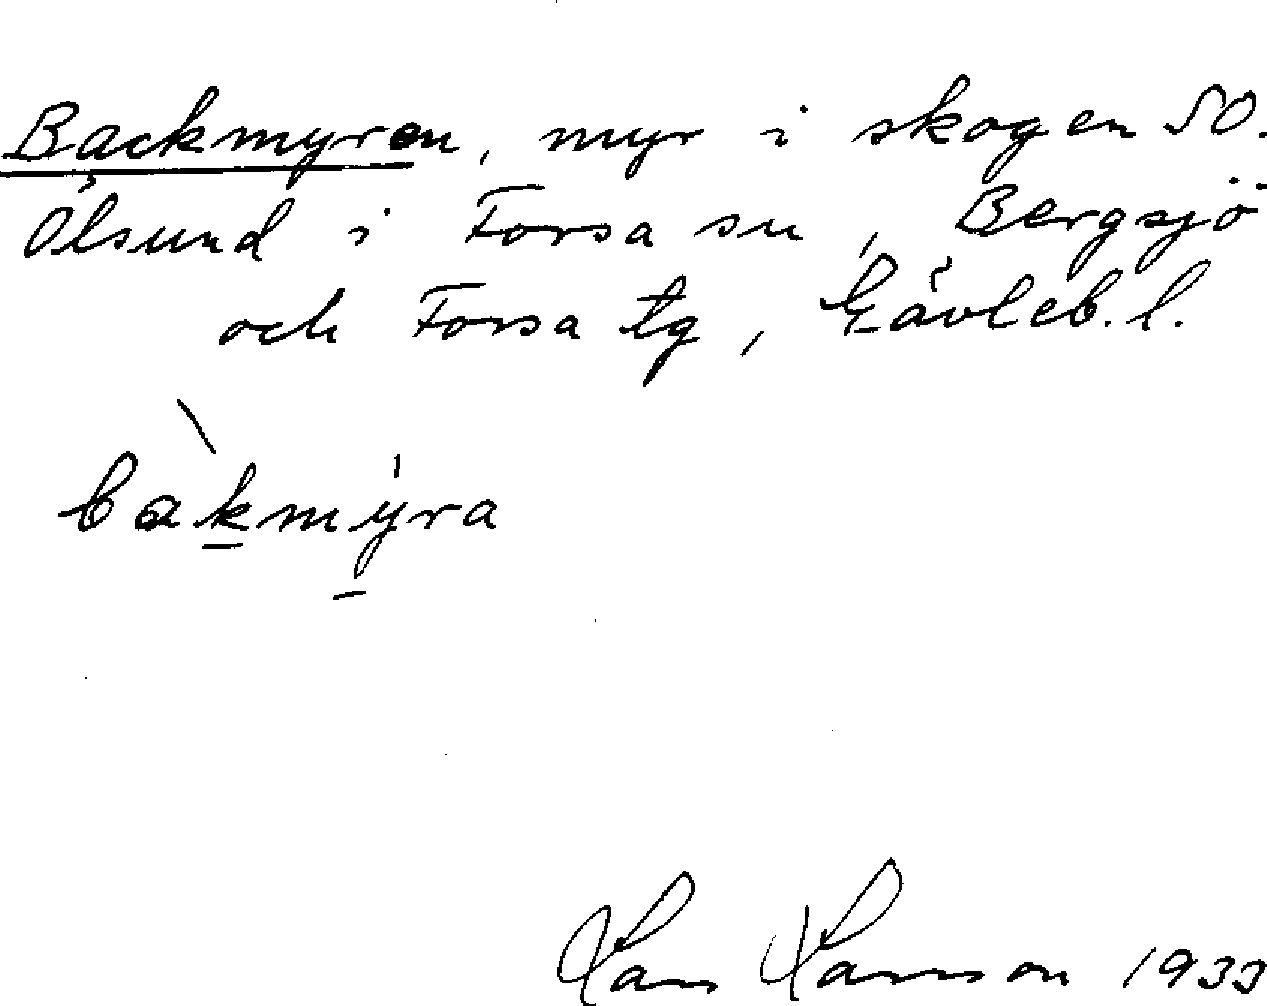 Backmyren, myr i skogen SO.
Ölsund i Forsa sn, Bergsjö
och Forsa tg, Gävleb. l.
bakmyra
Lars Larsson 1933